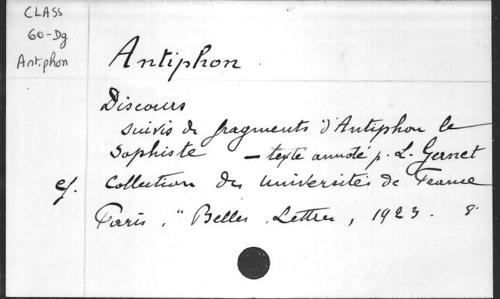 CLASS
60-Dg
Antiphon
Antiphon.
Discours
suivis de fragments d'Antiphon le
Sophiste — texte annoté p. L. Gernet
ej. Collection des Universités de France
Paris, "Belles Lettres, 1923. 8°